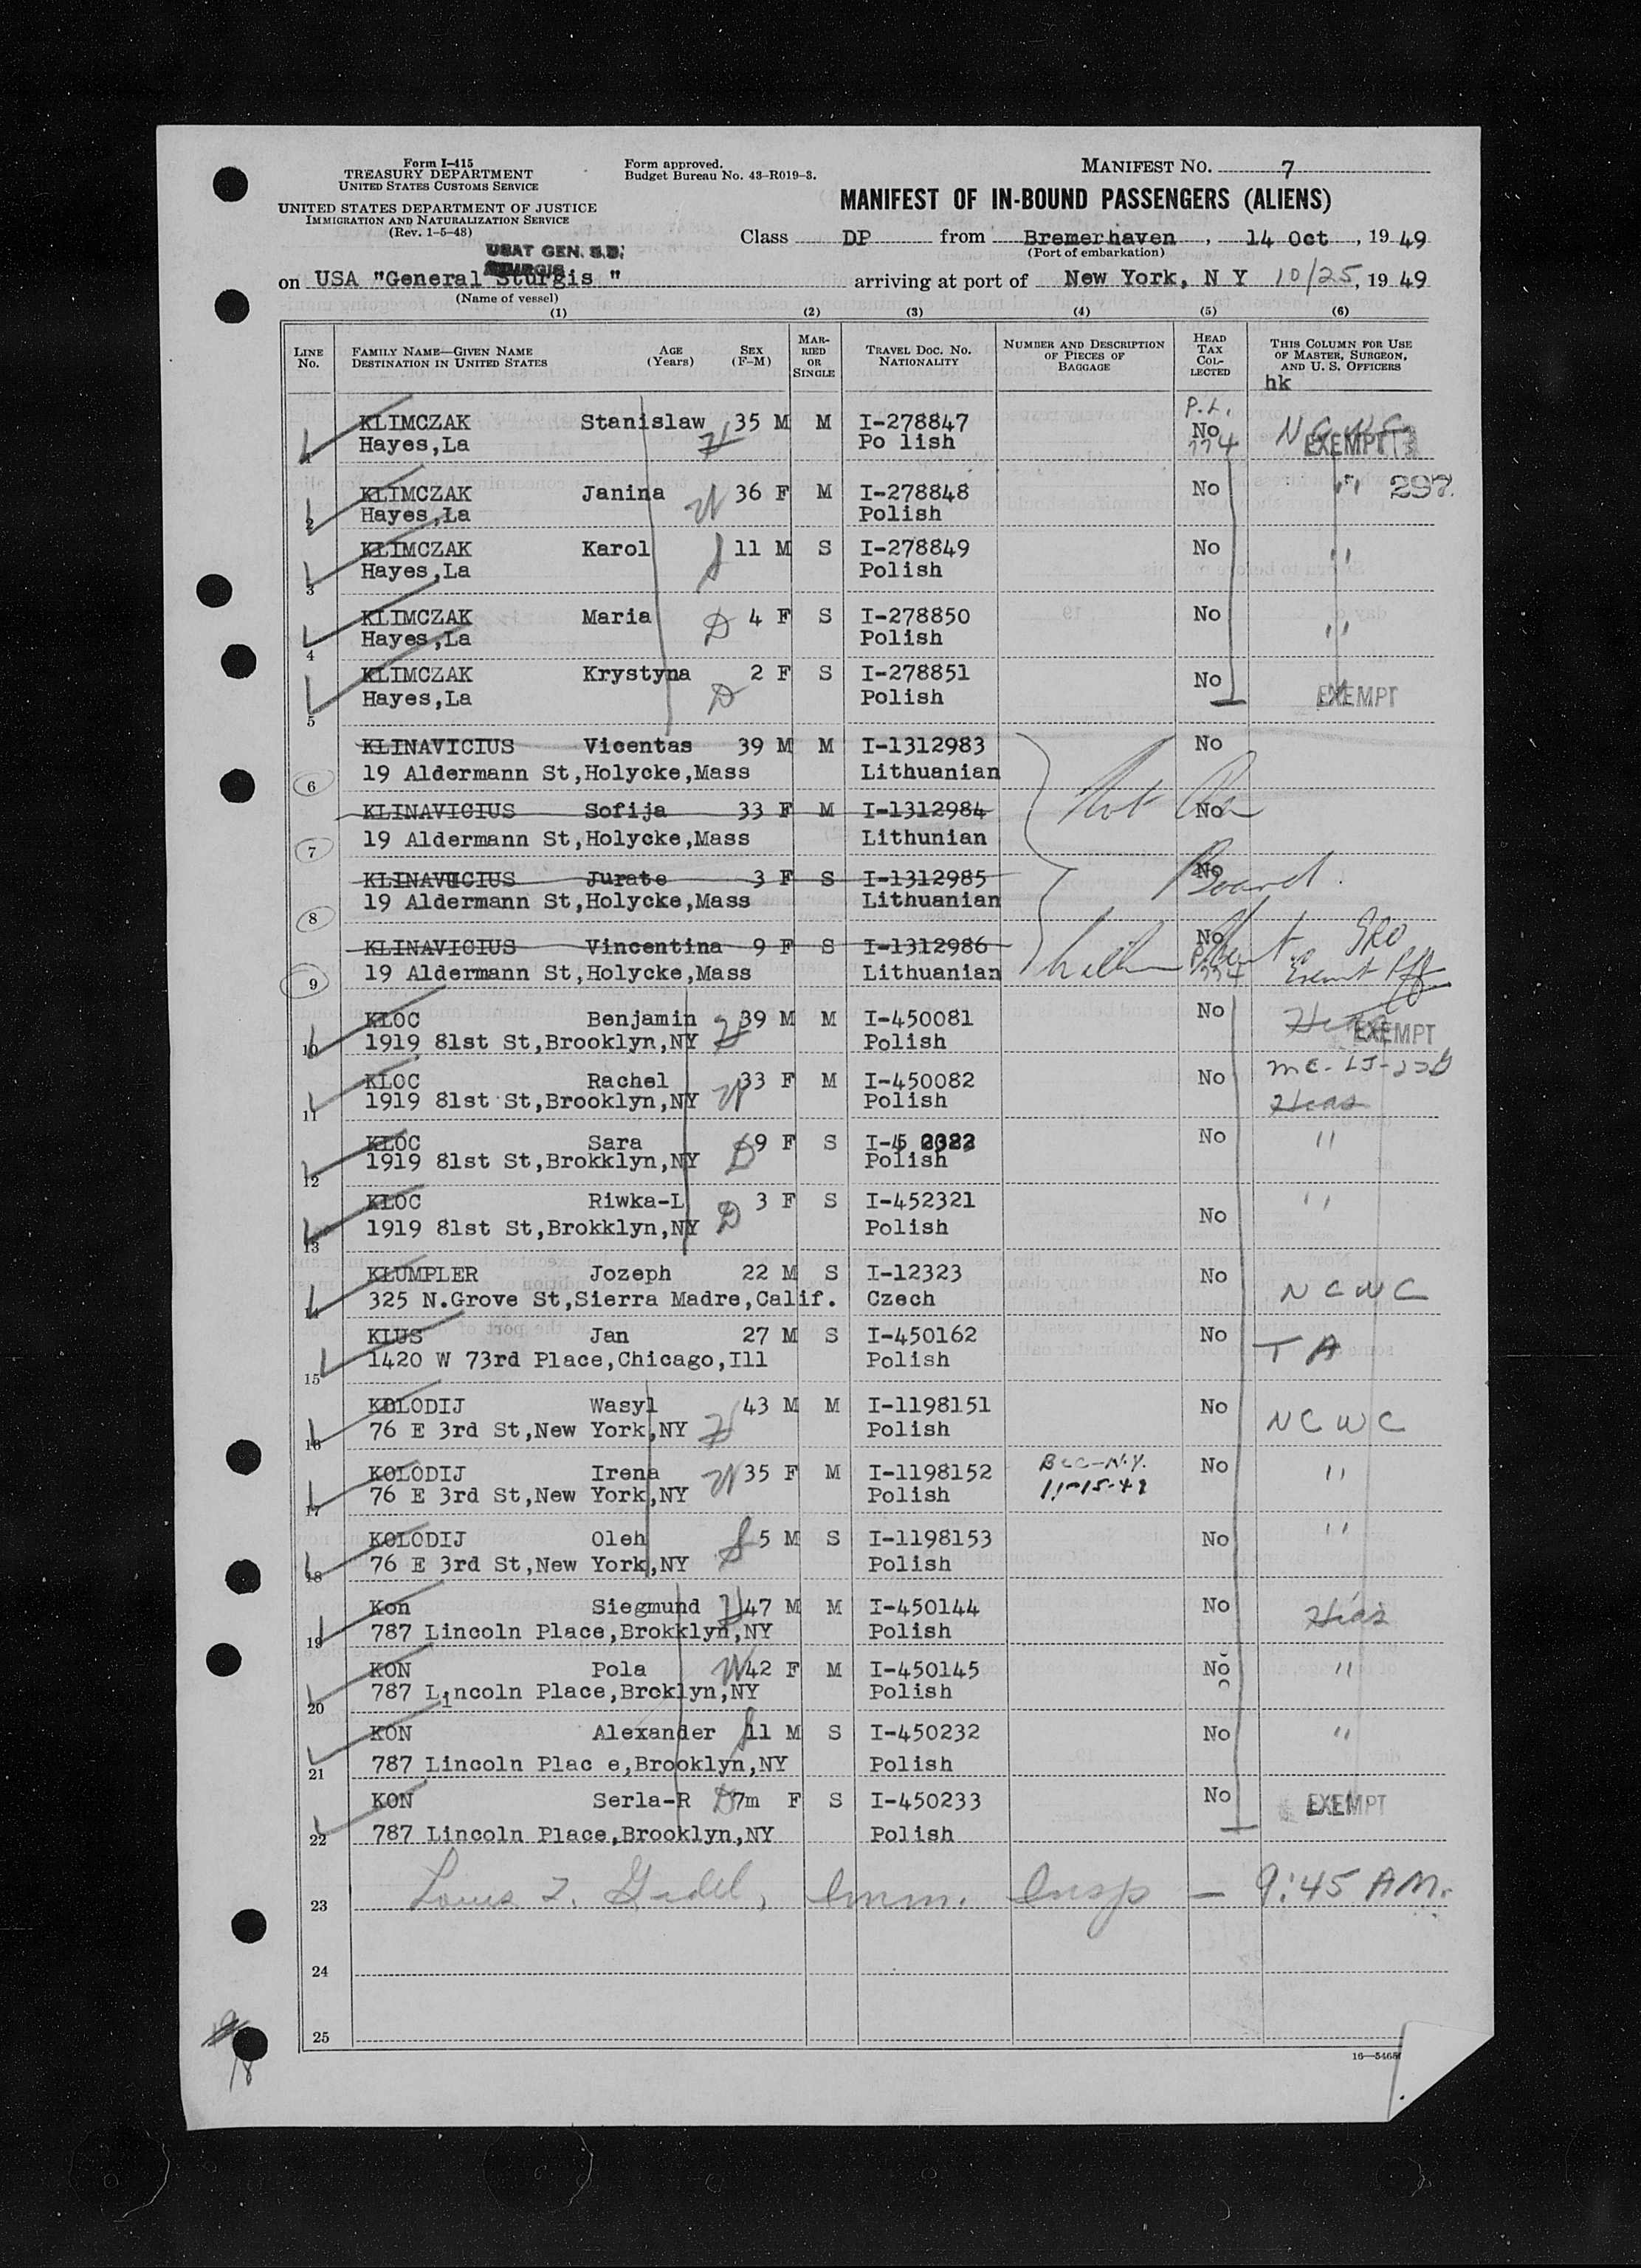 Form I-415
TREASURY DEPARTMENT
UNITED STATES CUSTOMS SERVICE
UNITED STATES DEPARTMENT OF JUSTICE
IMMIGRATION AND NATURALIZATION SERVICE
(Rev. 1-5-48)
Form approved.
Budget Bureau No. 43-R019-3.
MANIFEST NO. 7
MANIFEST OF IN-BOUND PASSENGERS (ALIENS)
Class DP from Bremerhaven, 14 Oct, 1949
(Port of embarkation)
USAT GEN. S.D.
STURGIS
on USA "General Sturgis " arriving at port of New York, N Y 10/25, 1949
(Name of vessel)
(1) (2) (3) (4) (5) (6)
LINE No. FAMILY NAME—GIVEN NAME DESTINATION IN UNITED STATES AGE (Years) SEX (F-M) MARRIED OR SINGLE TRAVEL DOC. NO. NATIONALITY NUMBER AND DESCRIPTION OF PIECES OF BAGGAGE HEAD TAX COLLECTED THIS COLUMN FOR USE OF MASTER, SURGEON, AND U. S. OFFICERS
hk
P.L.
1 KLIMCZAK Stanislaw 35 M M I-278847 No NCWC
Hayes,La H Po lish 774 EXEMPT
2 KLIMCZAK Janina W 36 F M I-278848 No " 297
Hayes,La Polish
3 KLIMCZAK Karol S 11 M S I-278849 No "
Hayes,La Polish
4 KLIMCZAK Maria D 4 F S I-278850 No "
Hayes,La Polish
5 KLIMCZAK Krystyna D 2 F S I-278851 No
Hayes,La Polish EXEMPT
6 KLINAVICIUS Vicentas 39 M M I-1312983 No
19 Aldermann St,Holycke,Mass Lithuanian
7 KLINAVICIUS Sofija 33 F M I-1312984 Not On No
19 Aldermann St,Holycke,Mass Lithunian
8 KLINAVUCIUS Jurate 3 F S I-1312985 No Board.
19 Aldermann St,Holycke,Mass Lithuanian
9 KLINAVICIUS Vincentina 9 F S I-1312986 No
19 Aldermann St,Holycke,Mass Lithuanian 774
10 KLOC Benjamin H 39 M M I-450081 No Hias
1919 81st St,Brooklyn,NY Polish EXEMPT
11 KLOC Rachel W 33 F M I-450082 No
1919 81st St,Brooklyn,NY Polish Hias
12 KLOC Sara D 9 F S No "
1919 81st St,Brokklyn,NY Polish
13 KLOC Riwka-L D 3 F S I-452321 No "
1919 81st St,Brokklyn,NY Polish
14 KLUMPLER Jozeph 22 M S I-12323 No NCWC
325 N.Grove St,Sierra Madre,Calif. Czech
15 KLUS Jan 27 M S I-450162 No T A
1420 W 73rd Place,Chicago,Ill Polish
16 KOLODIJ Wasyl 43 M M I-1198151 No NCWC
76 E 3rd St,New York,NY H Polish
17 KOLODIJ Irena W 35 F M I-1198152 BCC-N.Y. No "
76 E 3rd St,New York,NY Polish 11-15-49
18 KOLODIJ Oleh S 5 M S I-1198153 No "
76 E 3rd St,New York,NY Polish
19 Kon Siegmund H 47 M M I-450144 No Hias
787 Lincoln Place,Brokklyn,NY Polish
20 KON Pola W 42 F M I-450145 No "
787 Lincoln Place,Brcklyn,NY Polish
21 KON Alexander S 11 M S I-450232 No "
787 Lincoln Plac e,Brooklyn,NY Polish
22 KON Serla-R D 7m F S I-450233 No EXEMPT
787 Lincoln Place,Brooklyn,NY Polish
23 Imm. Insp — 9:45 AM.
24
25